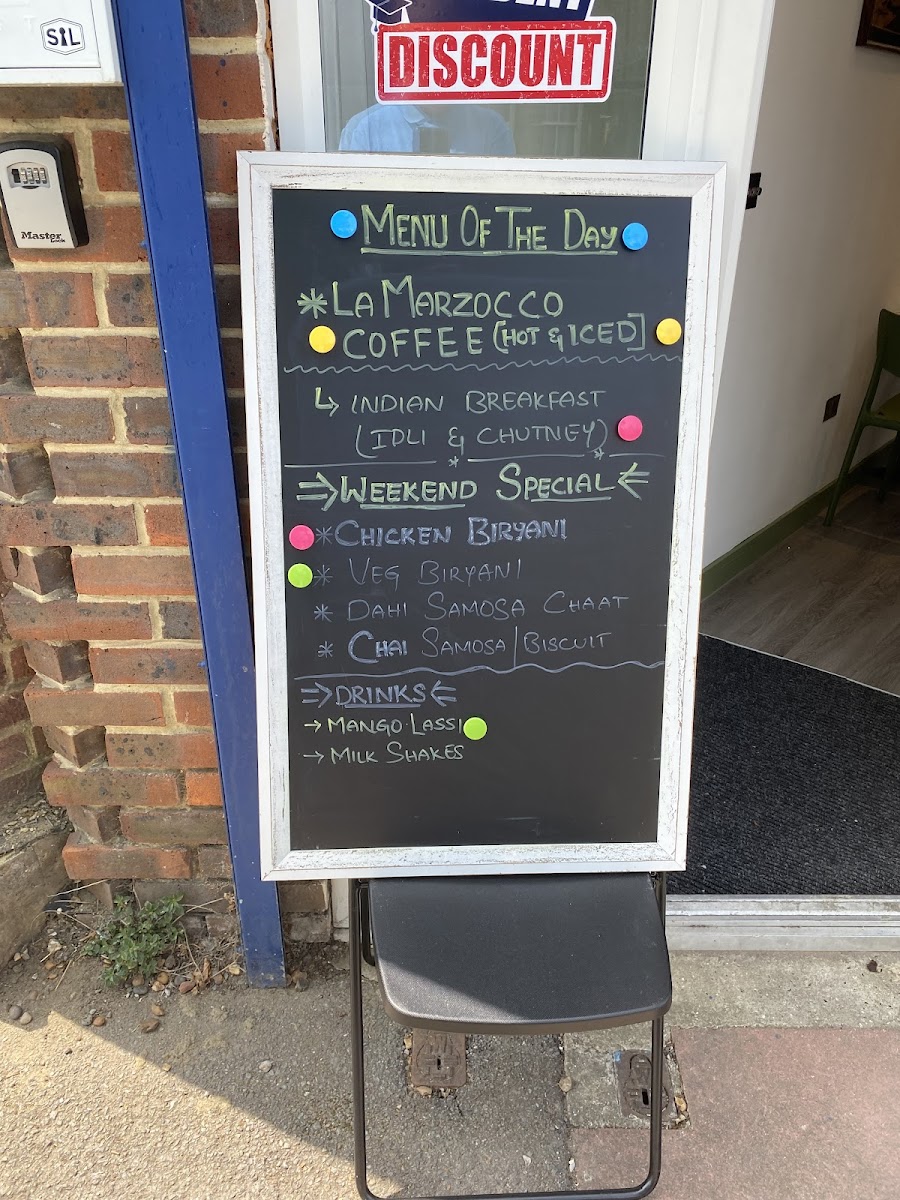 SL
DISCOUNT
Master
Lock
MENU OF THE DAY
*LA MARZOCCO
COFFEE [HOT & ICED]
↳ INDIAN BREAKFAST
(IDLI & CHUTNEY)
⇒WEEKEND SPECIAL⇐
*CHICKEN BIRYANI
* VEG BIRYANI
* DAHI SAMOSA CHAAT
* CHAI SAMOSA/BISCUIT
⇒DRINKS⇐
→ MANGO LASSI
→ MILK SHAKES